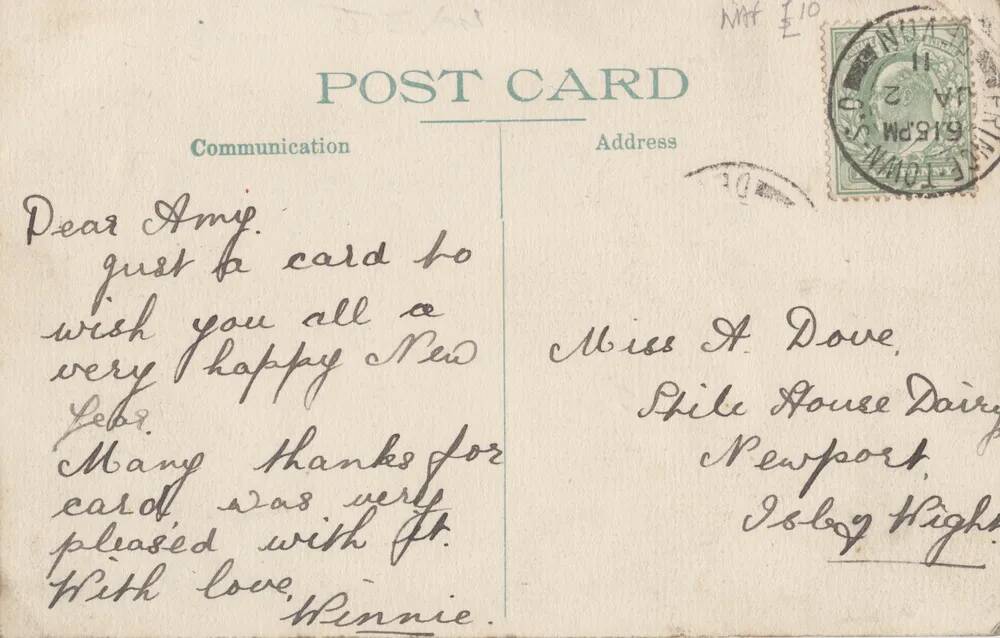 POST CARD
Communication
Address
Dear Amy.
Just a card to
wish you all a
very happy New
Year.
Many thanks for
card, was very
pleased with it.
With love,
Winnie.
Miss A. Dove.
Stile House Dairy
Newport.
Isle of Wight.
PRINCETOWN S.O.
DEVON
6.15 PM
JA 2
11